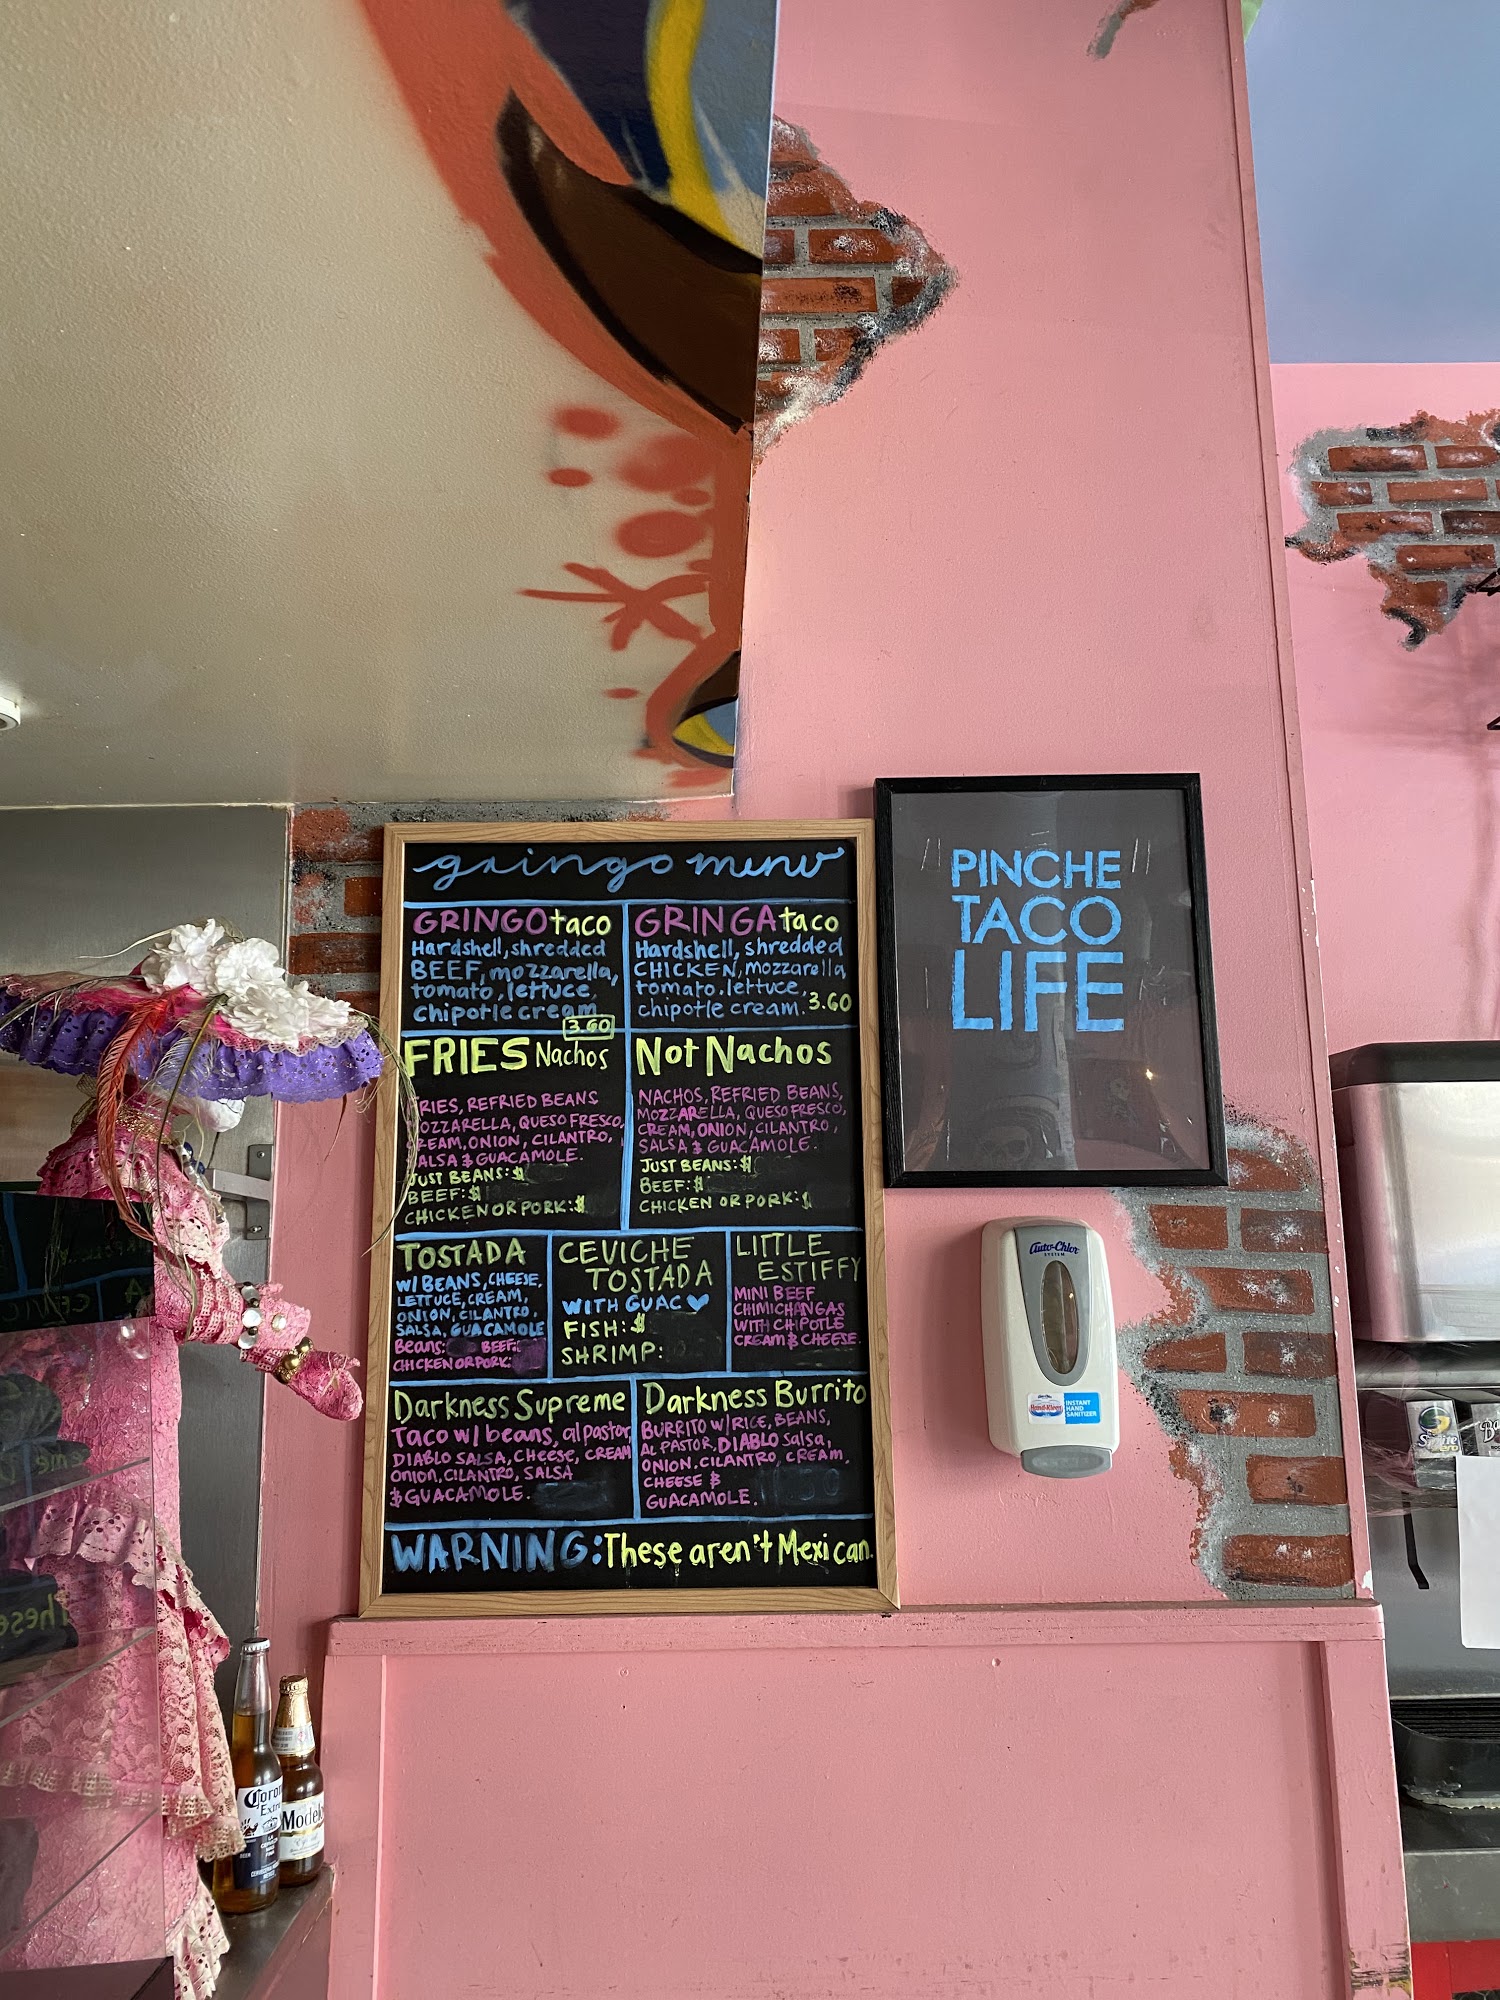 gringo menu
GRINGO taco
Hardshell, shredded
BEEF, mozzarella,
tomato, lettuce,
chipotle cream
3.60
GRINGA taco
Hardshell, shredded
CHICKEN, mozzarella,
tomato. lettuce,
chipotle cream. 3.60
FRIES Nachos
RIES, REFRIED BEANS
OZZARELLA, QUESO FRESCO,
REAM, ONION, CILANTRO,
ALSA & GUACAMOLE.
JUST BEANS: $
BEEF: $
CHICKEN OR PORK: $
Not Nachos
NACHOS, REFRIED BEANS,
MOZZARELLA, QUESO FRESCO,
CREAM, ONION, CILANTRO,
SALSA & GUACAMOLE.
JUST BEANS: $
BEEF: $
CHICKEN OR PORK: $
TOSTADA
W/ BEANS, CHEESE,
LETTUCE, CREAM,
ONION, CILANTRO,
SALSA, GUACAMOLE
Beans: BEEF:
CHICKEN OR PORK:
CEVICHE
TOSTADA
WITH GUAC
FISH: $
SHRIMP:
LITTLE
ESTIFFY
MINI BEEF
CHIMICHANGAS
WITH CHIPOTLE
CREAM & CHEESE.
Darkness Supreme
Taco w/ beans, al pastor,
DIABLO SALSA, Cheese, CREAM
Onion, CILANTRO, SALSA
& GUACAMOLE.
Darkness Burrito
BURRITO W/ RICE, BEANS,
AL PASTOR, DIABLO Salsa,
ONION. CILANTRO, CREAM,
CHEESE &
GUACAMOLE.
WARNING: These aren't Mexican.
"PINCHE"
TACO
LIFE
Auto-Chlor
SYSTEM
INSTANT
HAND
SANITIZER
Corona
Extra
Modelo
Sprite